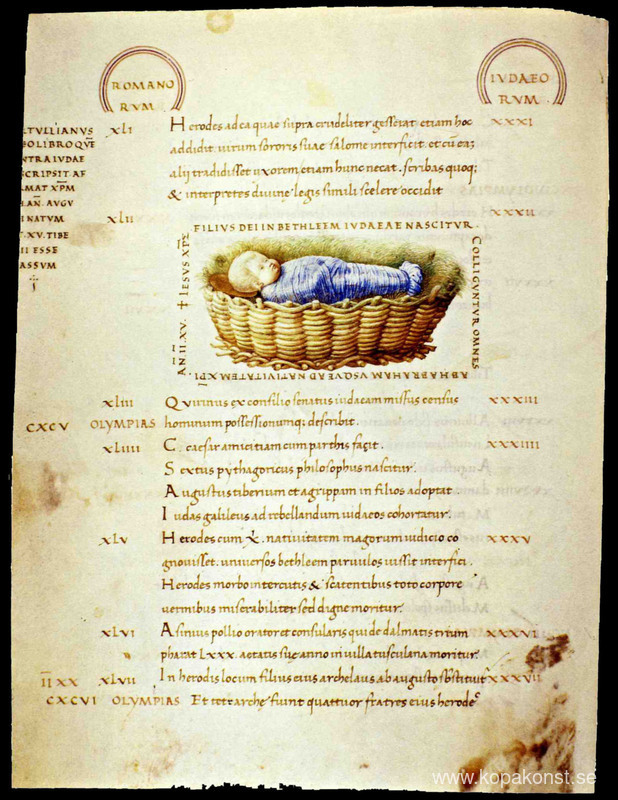 ROMANO
RVM
IVDAEO
RVM
TVLLIANVS
LIBRO QVE
NTRA IVDAE
SCRIPSIT AF
MAT XPM
AN AVGV
NATVM
XV TIBE
II ESSE
ASSVM
XLI Herodes ad ea quae supra crudeliter gesserat etiam hoc XXXI
addidit virum sororis suae salome interficit et cũ eaȝ
alii tradidisset uxorem etiam hunc necat. scribas quoq;
& interpretes divinę legis simili scelere occidit
XLII XXXII
FILIVS DEI IN BETHLEEM IVDAEAE NASCITVR.
COLLIGVNTVR OMNES
AB HABRAHAM VSQVE AD NATIVITATEM XPI
AN̄. II. XV. † IESVS XPS
XLIII Quirinus ex consilio senatus iudaeam missus census XXXIII
CXCV OLYMPIAS hominum possessionumq; describit.
XLIIII C. caesar amicitiam cum parthis facit. XXXIIII
Sextus pythagoricus philosophus nascitur.
Augustus tiberium et agrippam in filios adoptat
Iudas galileus ad rebellandum iudaeos cohortatur.
XLV Herodes cum X̃. nativitatem magorum iudicio co XXXV
gnovisset. universos bethleem parvulos iussit interfici.
Herodes morbo intercutis & scatentibus toto corpore
vermibus miserabiliter sed digne moritur.
XLVI Asinius pollio orator et consularis qui de dalmatis trium XXXVI
pharat LXXX. aetatis suę anno in villa tusculana moritur.
IIXX XLVII In herodis locum filius eius archelaus ab augusto sƀstituit XXXVII
CXCVI OLYMPIAS Et tetrarchę fiunt quattuor fratres eius herode
www.kopakonst.se